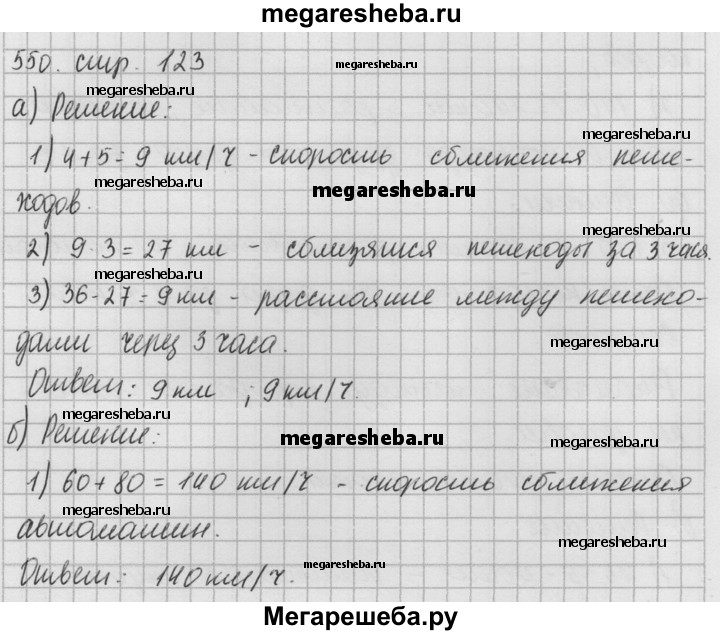 megaresheba.ru
550. стр. 123
megaresheba.ru
megaresheba.ru
а) Решение:
megaresheba.ru
1) 4+5=9 км/ч - скорость сближения пеше-
megaresheba.ru
megaresheba.ru
ходов.
megaresheba.ru
2) 9·3=27 км - сблизятся пешеходы за 3 часа.
megaresheba.ru
megaresheba.ru
3) 36-27=9 км - расстояние между пешехо-
дами через 3 часа.
megaresheba.ru
Ответ: 9 км ; 9 км/ч.
megaresheba.ru
б) Решение:
megaresheba.ru
megaresheba.ru
1) 60+80=140 км/ч - скорость сближения
megaresheba.ru
автомашин.
megaresheba.ru
Ответ: 140 км/ч.
megaresheba.ru
Мегарешеба.ру